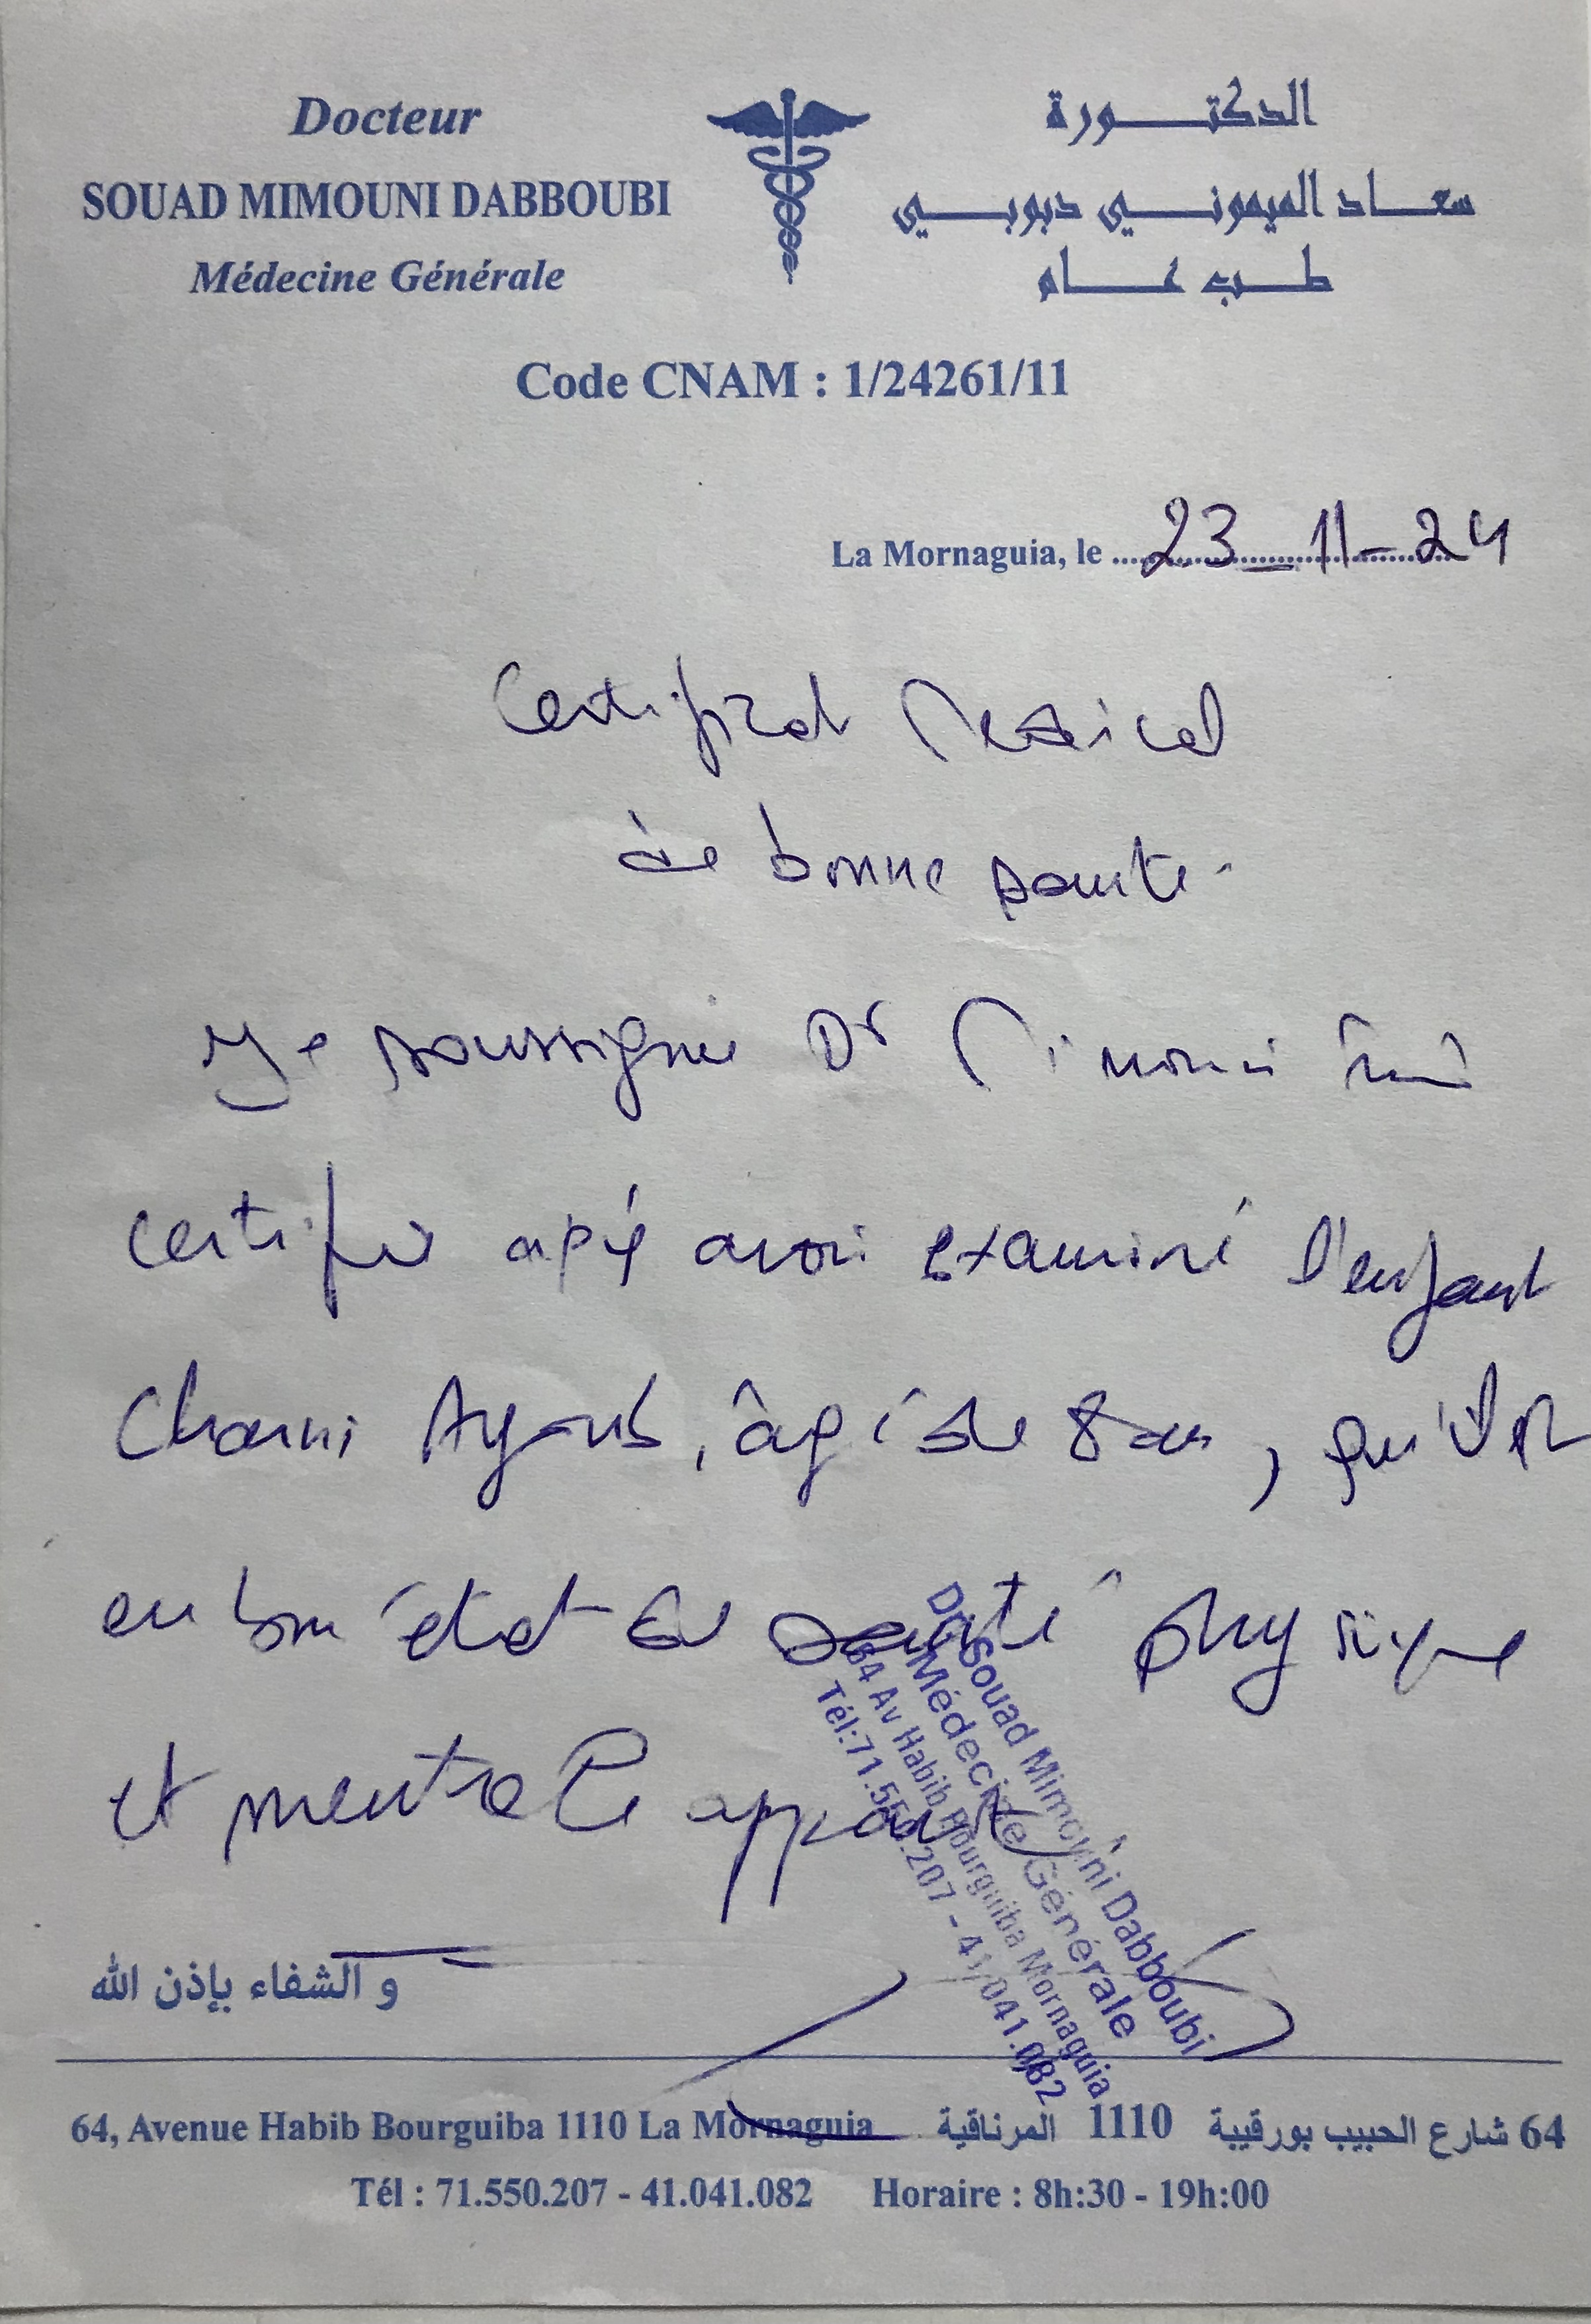 Docteur
SOUAD MIMOUNI DABBOUBI
Médecine Générale
الدكتورة
سعاد الميموني دبوبي
طب عام
Code CNAM : 1/24261/11
La Mornaguia, le 23_11_24
Certificat Médical
de bonne santé.
Je soussignée Dr Mimouni
certifie après avoir examiné l'enfant
Charni Ayoub, âgé de 8 ans, qu'il est
en bon état de santé physique
et mentale apparente
Dr. Souad Mimouni Dabboubi
Médecine Générale
64 Av Habib Bourguiba Mornaguia
Tél:71.550.207 - 41.041.082
و الشفاء بإذن الله
64, Avenue Habib Bourguiba 1110 La Mornaguia
64 شارع الحبيب بورقيبة 1110 المرناقية
Tél : 71.550.207 - 41.041.082 Horaire : 8h:30 - 19h:00